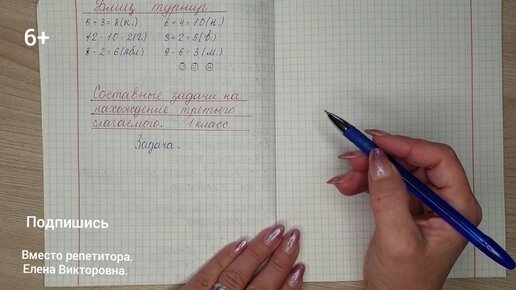 Блиц турнир
5 + 3 = 8 (к.) 6 + 4 = 10 (н.)
12 - 10 = 2 (г.) 3 + 2 = 5 (в.)
8 - 2 = 6 (ябл.) 9 - 6 = 3 (м.)
Составные задачи на
нахождение третьего
слагаемого. 1 класс
Задача.
6+
Подпишись
Вместо репетитора.
Елена Викторовна.